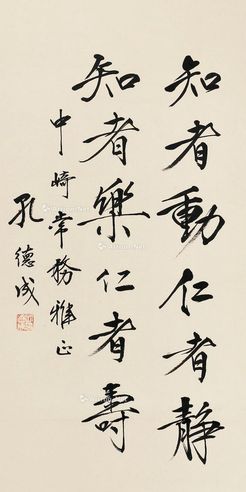 知者動仁者静
知者樂仁者壽
中崎常務雅正
孔德成